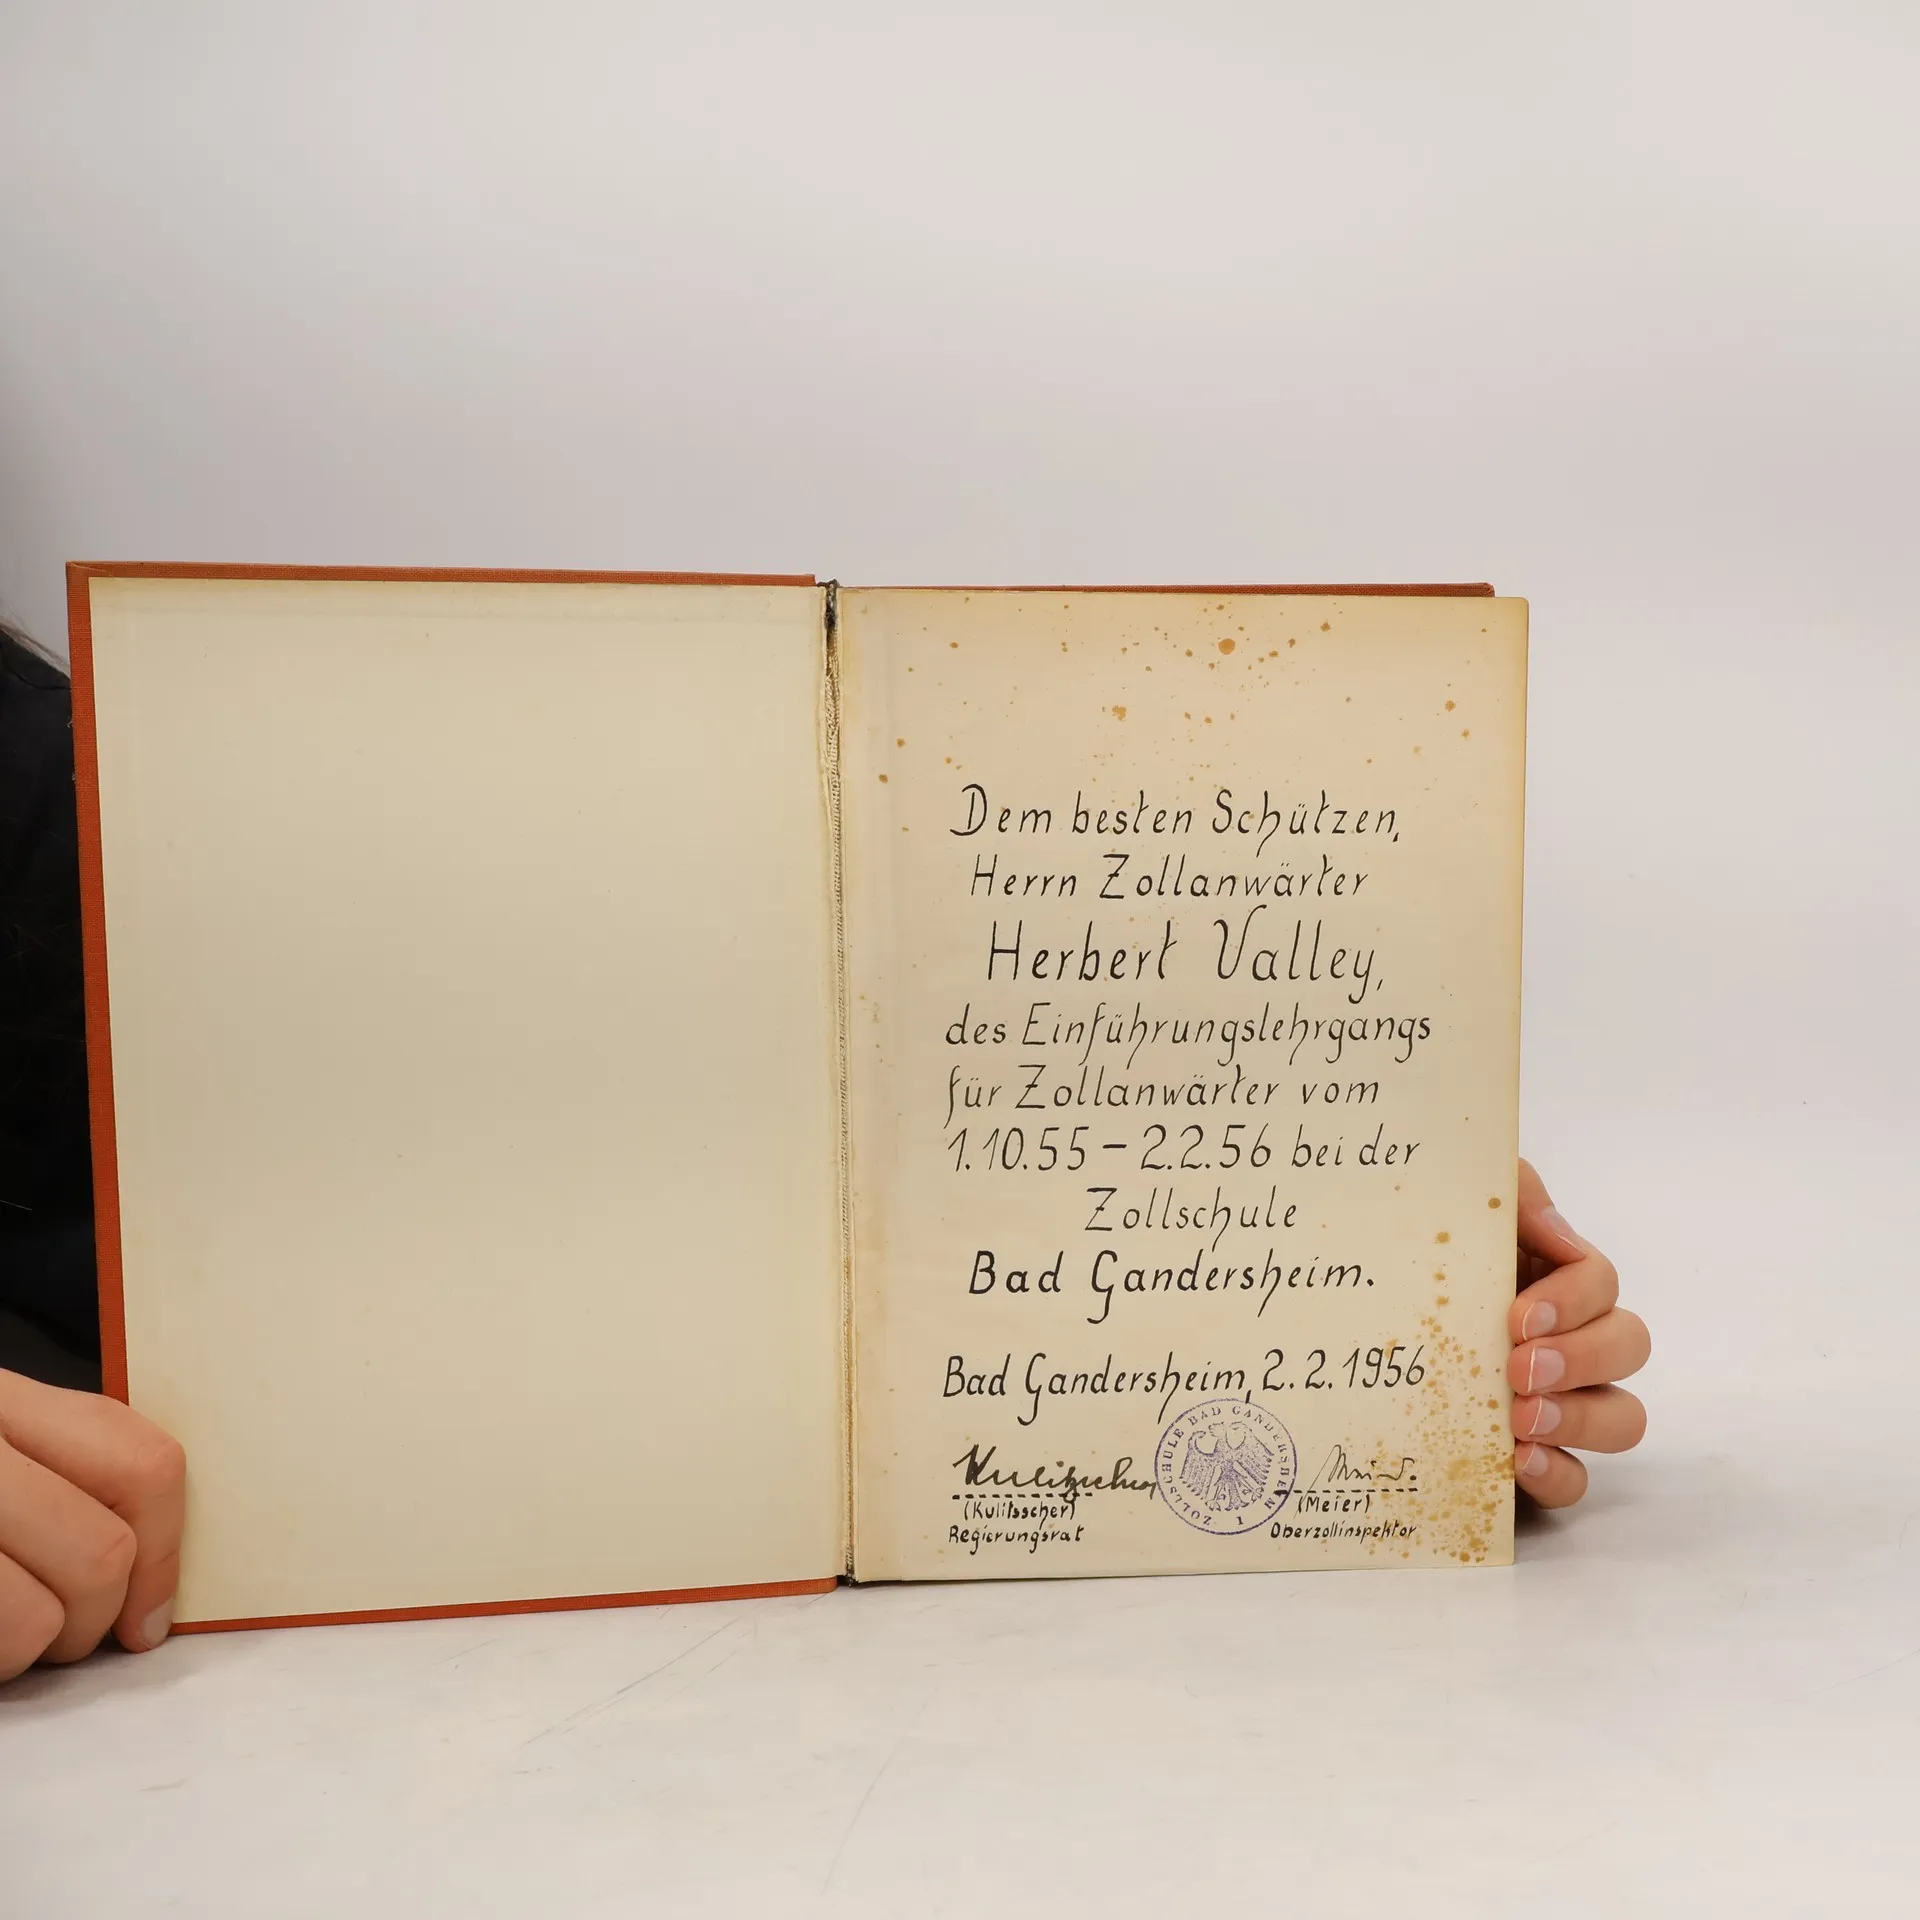 Dem besten Schützen,
Herrn Zollanwärter
Herbert Valley,
des Einführungslehrgangs
für Zollanwärter vom
1.10.55 – 2.2.56 bei der
Zollschule
Bad Gandersheim.
Bad Gandersheim, 2.2.1956
ZOLLSCHULE BAD GANDERSHEIM
1
(Kulitsscher)
Regierungsrat
(Meier)
Oberzollinspektor